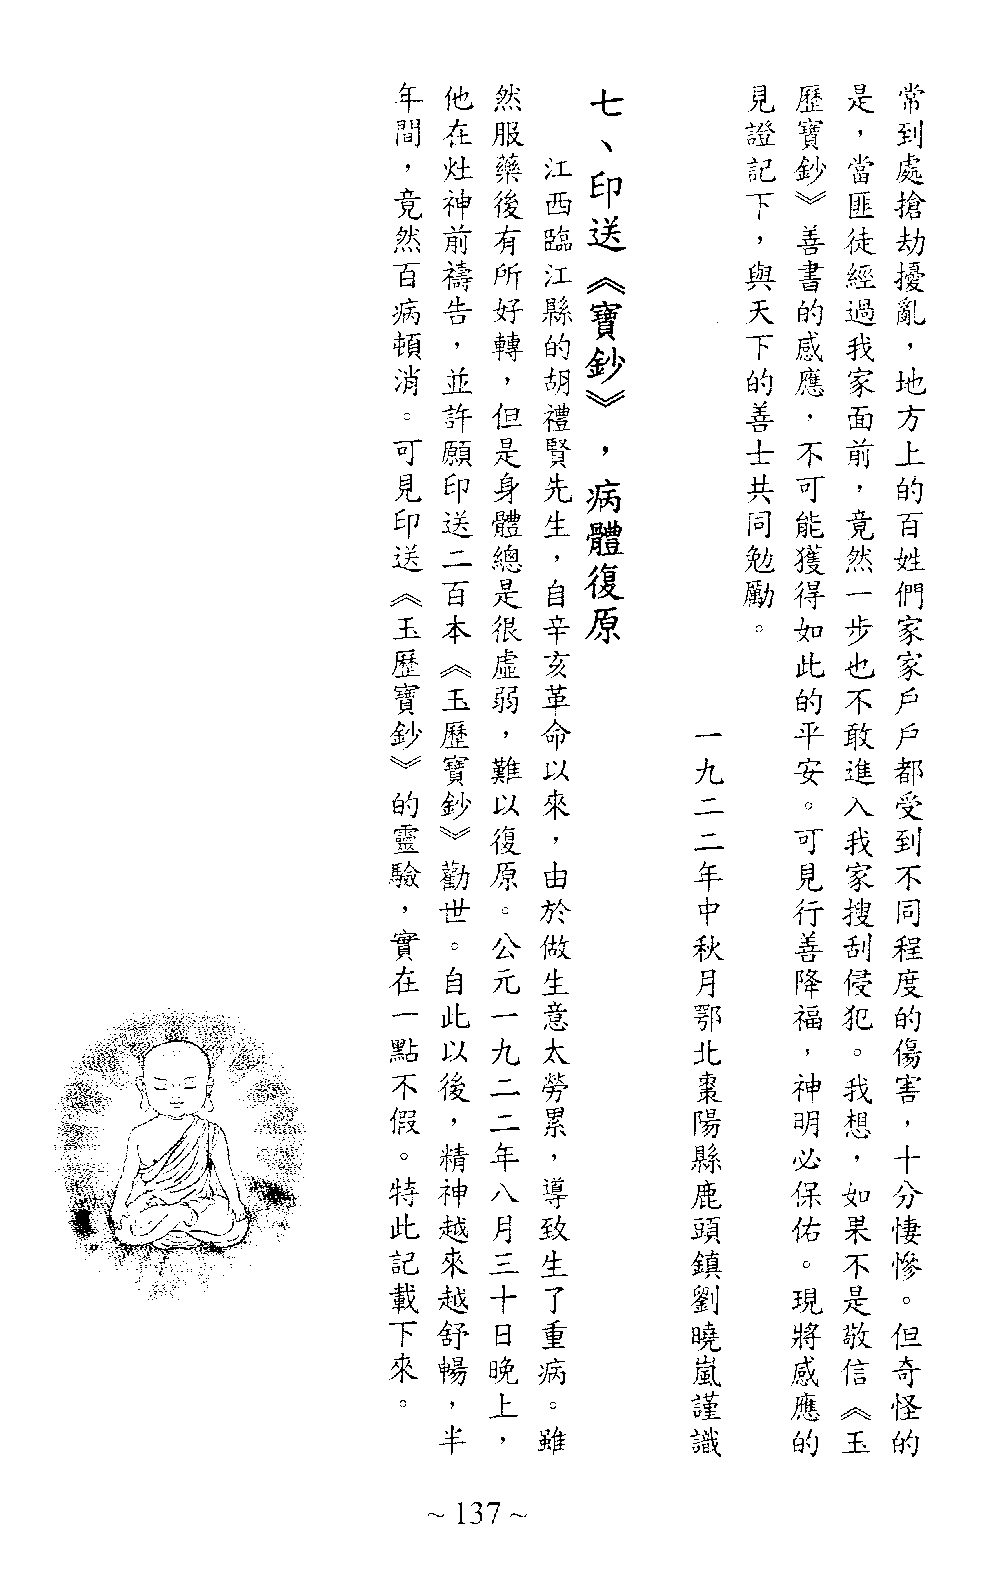 常到處搶劫擾亂，地方上的百姓們家家戶戶都受到不同程度的傷害，十分悽慘。但奇怪的
是，當匪徒經過我家面前，竟然一步也不敢進入我家搜刮侵犯。我想，如果不是敬信《玉
歷寶鈔》善書的感應，不可能獲得如此的平安。可見行善降福，神明必保佑。現將感應的
見證記下，與天下的善士共同勉勵。
一九二二年中秋月鄂北棗陽縣鹿頭鎮劉曉嵐謹識
七、印送《寶鈔》，病體復原
江西臨江縣的胡禮賢先生，自辛亥革命以來，由於做生意太勞累，導致生了重病。雖
然服藥後有所好轉，但是身體總是很虛弱，難以復原。公元一九二二年八月三十日晚上，
他在灶神前禱告，並許願印送二百本《玉歷寶鈔》勸世。自此以後，精神越來越舒暢，半
年間，竟然百病頓消。可見印送《玉歷寶鈔》的靈驗，實在一點不假。特此記載下來。
~137~